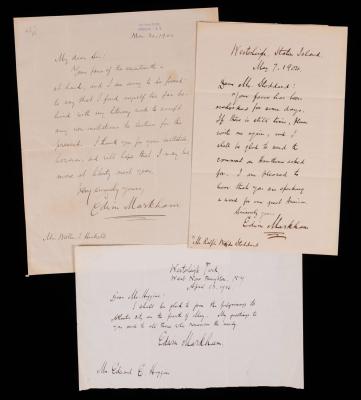 Mar. 20, 1902
My dear Sir:
Your favor of the seventeenth is
at hand, and I am sorry to be forced
to say that I find myself too far be-
hind with my literary work to accept
any new invitations to lecture for the
present. I thank you for your invitation
however, and will hope that I may be
more at liberty next year.
Very sincerely yours,
Edwin Markham
Westerleigh, Staten Island.
May 7, 1904.
Dear Mr. Stoddard:
Your favor has been
overlooked for some days.
If there is still time, please
write me again, and I
shall be glad to send the
comment on Hawthorne asked
for. I am pleased to
know that you are speaking
a word for our great American.
Sincerely yours,
Edwin Markham
Mr. Stoddard
Westerleigh Park
West New Brighton, N.Y.
April 1926
Dear Mr. Higgins:
I shall be glad to join the pilgrimage to
Atlantic City on the fourth of May. My greetings to
you and to all those who
Edwin Markham.
Mr. Edward E. Higgins